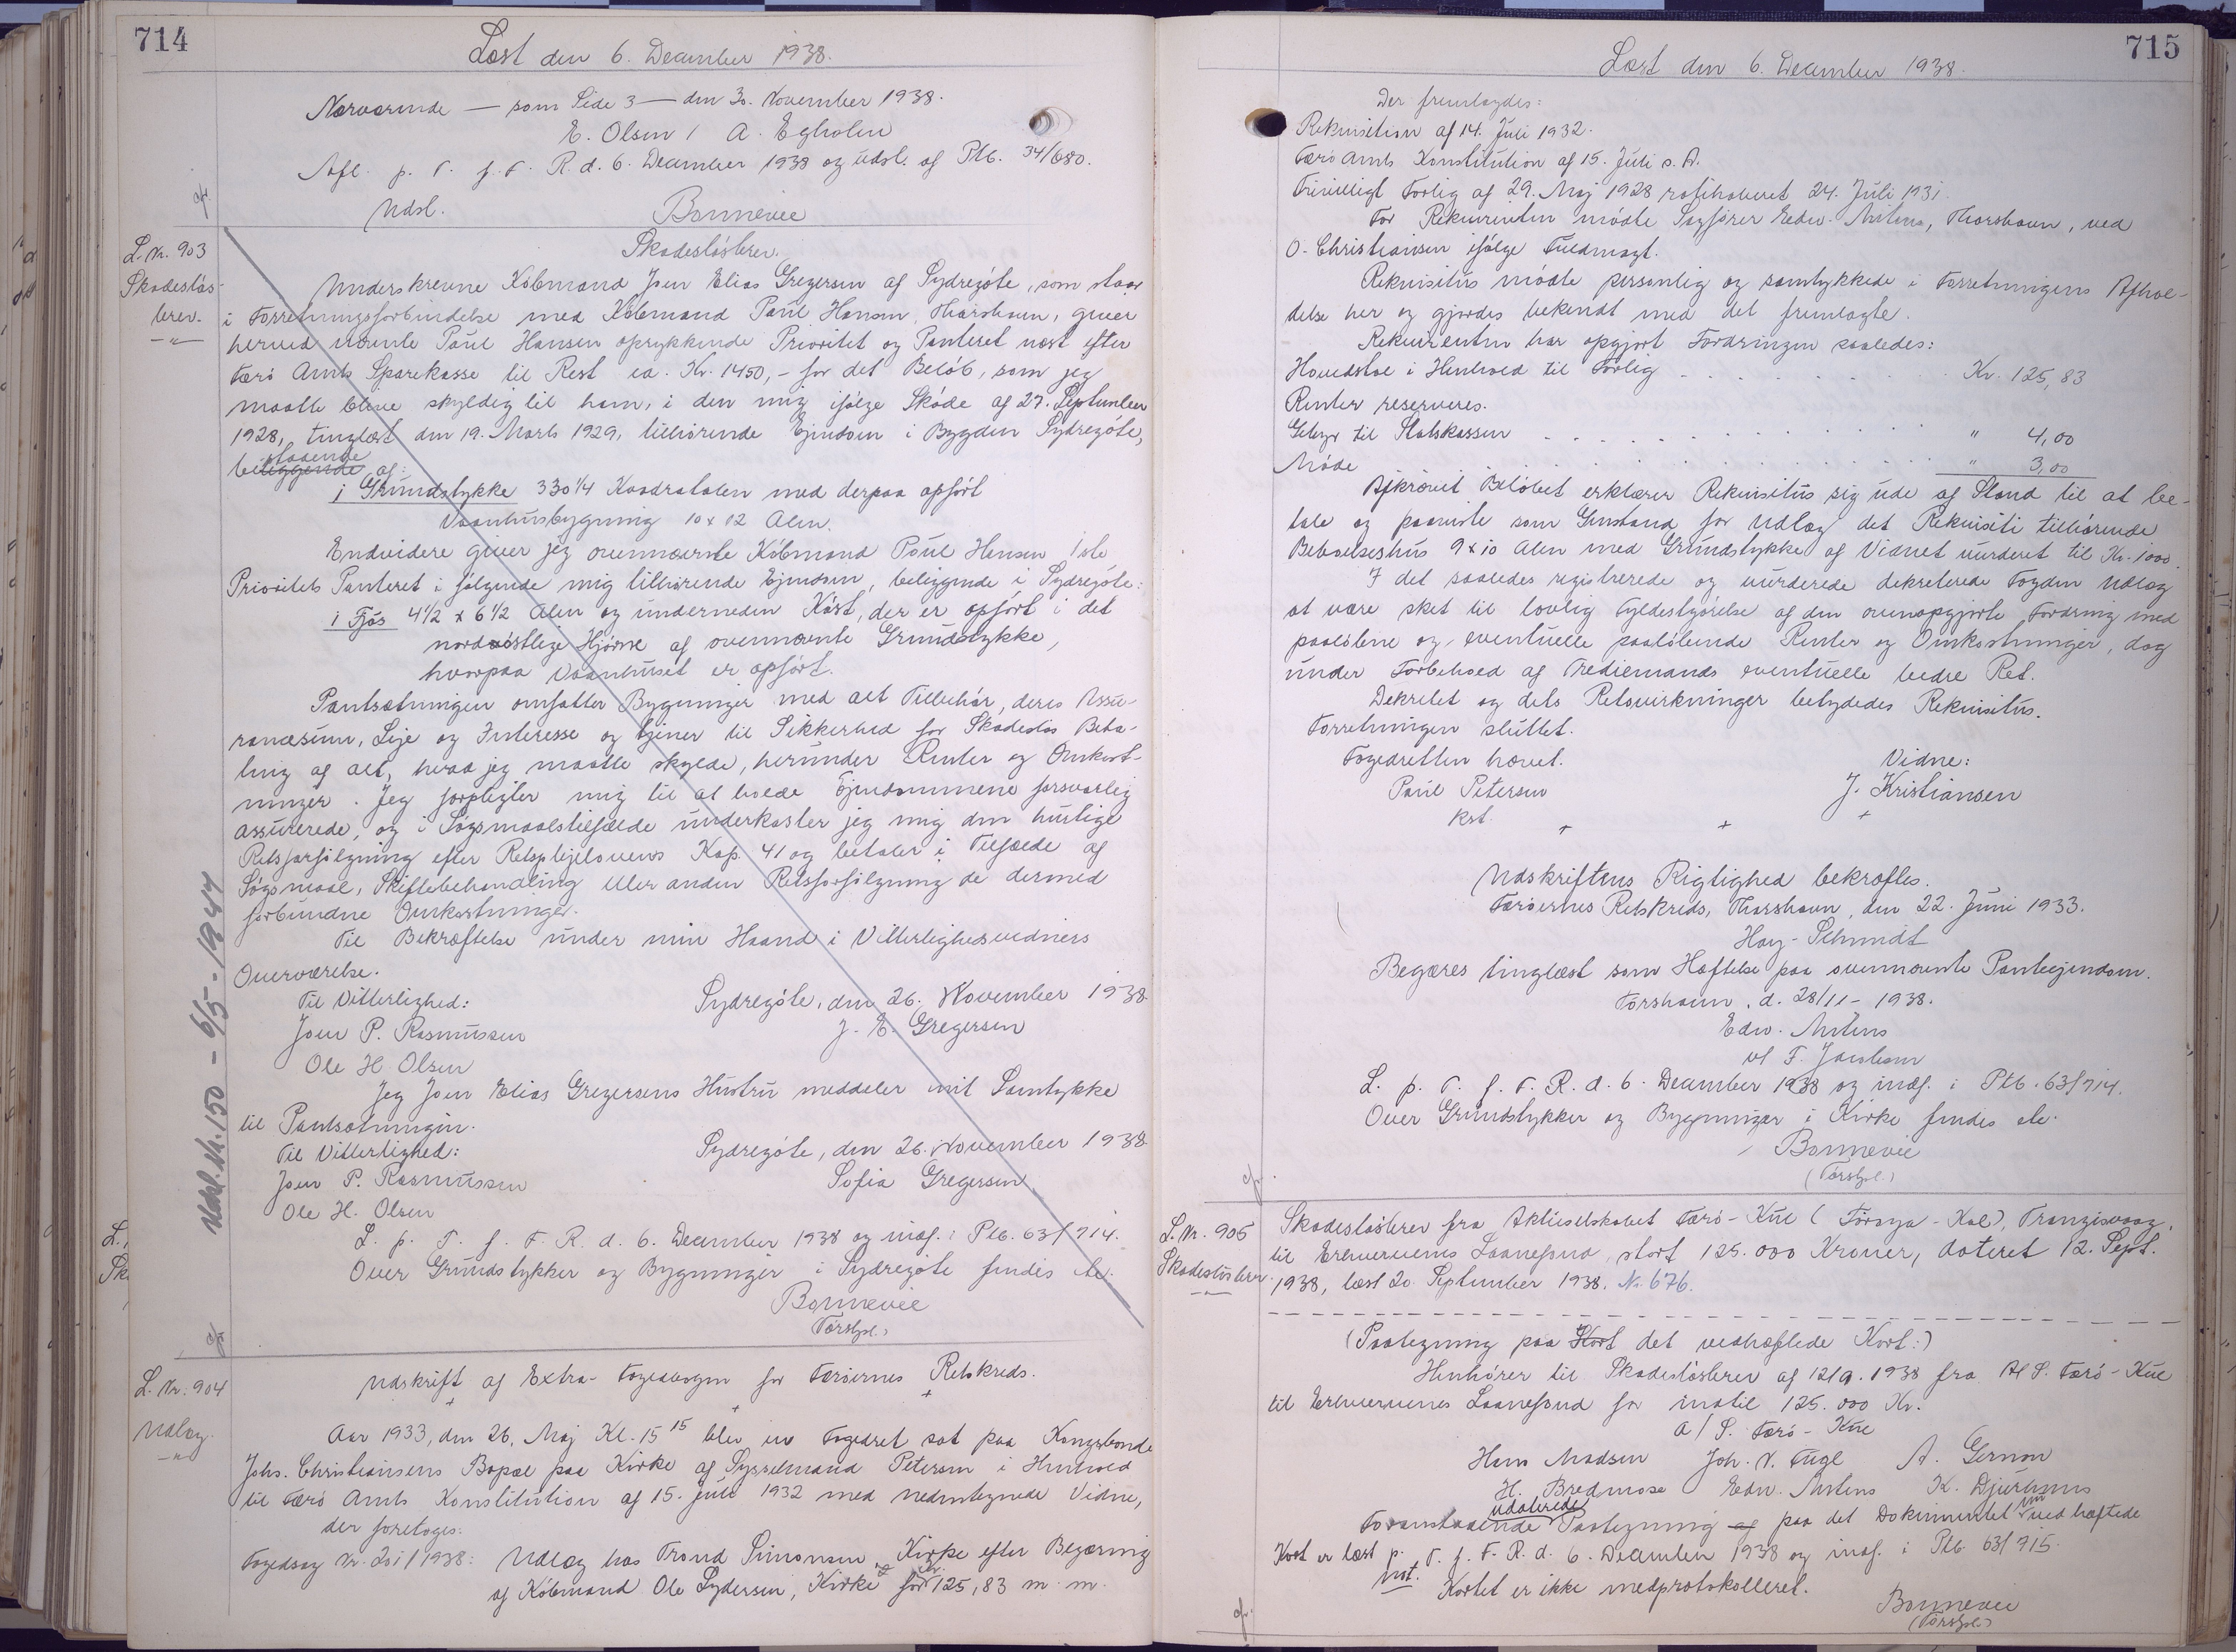 714
Læst den 6. December 1938.
Nærværende — som Side 3 — den 30. November 1938.
E. Olsen / A. Egholm
Afl. p. T. f. F. R. d. 6. December 1938 og udsl. af Ptb. 34/680.
Udsl. Bonnevie
L. Nr. 903
Skadesløs-
brev.
Skadesløsbrev.
Underskrevne Købmand Joen Elias Gregersen af Sydregøte, som staar
i Forretningsforbindelse med Købmand Poul Hansen, Thorshavn, giver
herved nævnte Poul Hansen oprykkende Prioritet og Panteret næst efter
Færø Amts Sparekasse til Rest ca. Kr. 1450,- for det Beløb, som jeg
maatte blive skyldig til ham, i den mig ifølge Skøde af 27. September
1928, tinglæst den 19. Marts 1929, tilhørende Ejendom i Bygden Sydregøte,
bestaaende af:
1 Grundstykke 330 1/4 Kvadratalen med derpaa opført
Vaanhusbygning 10 x 12 Alen.
Endvidere giver jeg ovennævnte Købmand Poul Hansen 1ste
Prioritets Panteret i følgende mig tilhørende Ejendom, beliggende i Sydregøte:
1 Fjós 4 1/2 x 6 1/2 Alen og underneden Køst, der er opført i det
nordøstlige Hjørne af ovennævnte Grundstykke,
hvorpaa Vaanhuset er opført.
Pantsætningen omfatter Bygninger med alt Tilbehør, deres Assu-
rancesum, Leje og Interesse og tjener til Sikkerhed for Skadesløs Beta-
ling af alt, hvad jeg maatte skylde, herunder Renter og Omkost-
ninger. Jeg forpligter mig til at holde Ejendommene forsvarlig
assurerede, og i Søgsmaalstilfælde underkaster jeg mig den hurtige
Retsforfølgning efter Retsplejelovens Kap. 41 og betaler i Tilfælde af
Søgsmaal, Skiftebehandling eller anden Retsforfølgning de dermed
forbundne Omkostninger.
Til Bekræftelse under min Haand i Vitterlighedsvidners
Overværelse.
Til Vitterlighed: Sydregøte, den 26. November 1938
Joen P. Rasmussen J. E. Gregersen
Ole H. Olsen
Jeg Joen Elias Gregersens Hustru meddeler mit Samtykke
til Pantsætningen.
Til Vitterlighed: Sydregøte, den 26. November 1938
Joen P. Rasmussen Sofia Gregersen
Ole H. Olsen
L. p. T. f. F. R. d. 6. December 1938 og indf. i Ptb. 63/714.
Over Grundstykker og Bygninger i Sydregøte findes etc.
Bonnevie
(Førstpl.)
Udsl. Nr. 150 - 6/5 - 1947
L. Nr. 904
Udlæg.
Udskrift af Extra-Fogedbogen for Færøernes Retskreds.
Aar 1933, den 26. Maj Kl. 15 15 blev en Fogedret sat paa Kongsbonde
Johs. Christiansens Bopæl paa Kirke af Sysselmand Petersen i Henhold
til Færø Amts Konstitution af 15. Juli 1932 med nedentegnede Vidne,
der foretoges:
Fogedsag Nr. 201/1938: Udlæg hos Trond Simonsen, Kirke efter Begæring
af Købmand Ole Sydersen, Kirke for Kr. 125,83 m. m.
715
Læst den 6. December 1938.
Der fremlagdes:
Rekvisition af 14. Juli 1932.
Færø Amts Konstitution af 15. Juli s. A.
Frivilligt Forlig af 29. Maj 1928 ratihaberet 24. Juli 1931.
For Rekvirenten mødte Sagfører Edw. Mitens, Thorshavn, ved
O. Christiansen ifølge Fuldmagt.
Rekvisitus mødte personlig og samtykkede i Forretningens Afhol-
delse her og gjordes bekendt med det fremlagte.
Rekvirenten har opgjort Fordringen saaledes:
Hovedstol i Henhold til Forlig Kr. 125,83
Renter reserveres.
Gebyr til Statskassen " 4,00
Møde " 3,00
Afkrævet Beløbet erklærer Rekvisitus sig ude af Stand til at be-
tale og paaviste som Genstand for Udlæg det Rekvisiti tilhørende
Beboelseshus 9 x 10 Alen med Grundstykke af Vidnet vurderet til Kr. 1000.
I det saaledes registrerede og vurderede dekreterede Fogden Udlæg
at være sket til lovlig Fyldestgørelse af den ovenopgjorte Fordring med
paaløbne og eventuelle paaløbende Renter og Omkostninger, dog
under Forbehold af Trediemands eventuelle bedre Ret.
Dekretet og dets Retsvirkninger betydedes Rekvisitus.
Forretningen sluttet.
Fogedretten hævet. Vidne:
Poul Petersen J. Kristiansen
kst.
Udskriftens Rigtighed bekræftes.
Færøernes Retskreds, Thorshavn, den 22. Juni 1933.
Hoy-Schmidt
Begæres tinglæst som Hæftelse paa ovennævnte Panteejendom.
Tórshavn, d. 28/11 - 1938.
Edw. Mitens
v/ F. Jacobsen
L. p. T. f. F. R. d. 6. December 1938 og indf. i Ptb. 63/714.
Over Grundstykker og Bygninger i Kirke findes etc.
Bonnevie
(Førstpl.)
L. Nr. 905
Skadesløsbrev.
Skadesløsbrev fra Aktieselskabet Færø-Kul (Föroya-Kol), Trangisvaag,
til Erhvervenes Laanefond, stort 125.000 Kroner, dateret 12. Sept.
1938, læst 20. September 1938. Nr. 676.
(Paategning paa Kort det vedhæftede Kort:)
Henhører til Skadesløsbrev af 12/9. 1938 fra A/S. Færø-Kul
til Erhvervenes Laanefond for indtil 125.000 Kr.
A/S. Færø-Kul
Hans Madsen Joh. N. Fugl
H. Bredmose Edw. Mitens K. Djurhuus
Foranstaaende udaterede Paategning af paa det Dokumentet nu vedhæftede
Kort er læst p. T. f. F. R. d. 6. December 1938 og indf. i Ptb. 63/715.
Not. Kortet er ikke medprotokolleret.
Bonnevie
(Førstpl.)